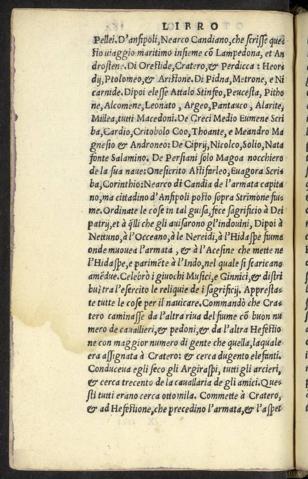 LIBRO
Pellei. D'anfipoli, Nearco Candiano, che scrisse que
sto uiaggio maritimo insieme cõ Lampedona, et An
drostene. Di Orestide, Cratero, & Perdicca: Heor
dij, Ptolomeo, & Aristone. Di Pidna, Metrone, e Ni
carnide. Dipoi elesse Attalo Stinfeo, Peucesta, Pitho
ne, Alcomene, Leonato, Argeo, Pantauco, Alarite,
Millea, tutti Macedoni. De Greci Medio Eumene Scri
ba, Cardio, Critobolo Coo, Thoante, e Meandro Ma
gnesio & Androneo: De Ciprij, Nicolco, Solio, Nata
fonte Salamino. De Persiani solo Magoa nocchiero
de la sua naue: Onesicrito Astisarleo, Euagora Scri
ba, Corinthio: Nearco di Candia de l'armata capita
no, ma cittadino d'Anfipoli posto sopra Strimone fu
me. Ordinate le cose in tal guisa, fece sagrificio à Dei
patrij, et à q̃lli che gli auisarono gl'indouini, Dipoi à
Nettuno, à l'Occeano, à le Nereidi, à l'Hidaspe fume
onde mouuea l'armata, & à l'Acesine che mette ne
l'Hidaspe, e parimẽte à l'Indo, nel quale si scaricano
amẽdue. Celebrò i giuochi Musici, e Ginnici, & distri
buì tra l'esercito le reliquie de i sagrificij, Appresta
te tutte le cose per il nauicare. Commandò che Cra
tero caminasse da l'altra riua del fiume cõ buon nu
mero de cauallieri, & pedoni, & da l'altra Hefestio
ne con maggior numero di gente che quella, laquale
era assignata à Cratero: & cerca dugento elefanti.
Conduceua egli seco gli Argiraspi, tutti gli arcieri,
& cerca trecento de la cauallaria de gli amici. Que
sti tutti erano cerca ottomila. Commette à Cratero,
& ad Hefestione, che precedino l'armata, & l'aspet